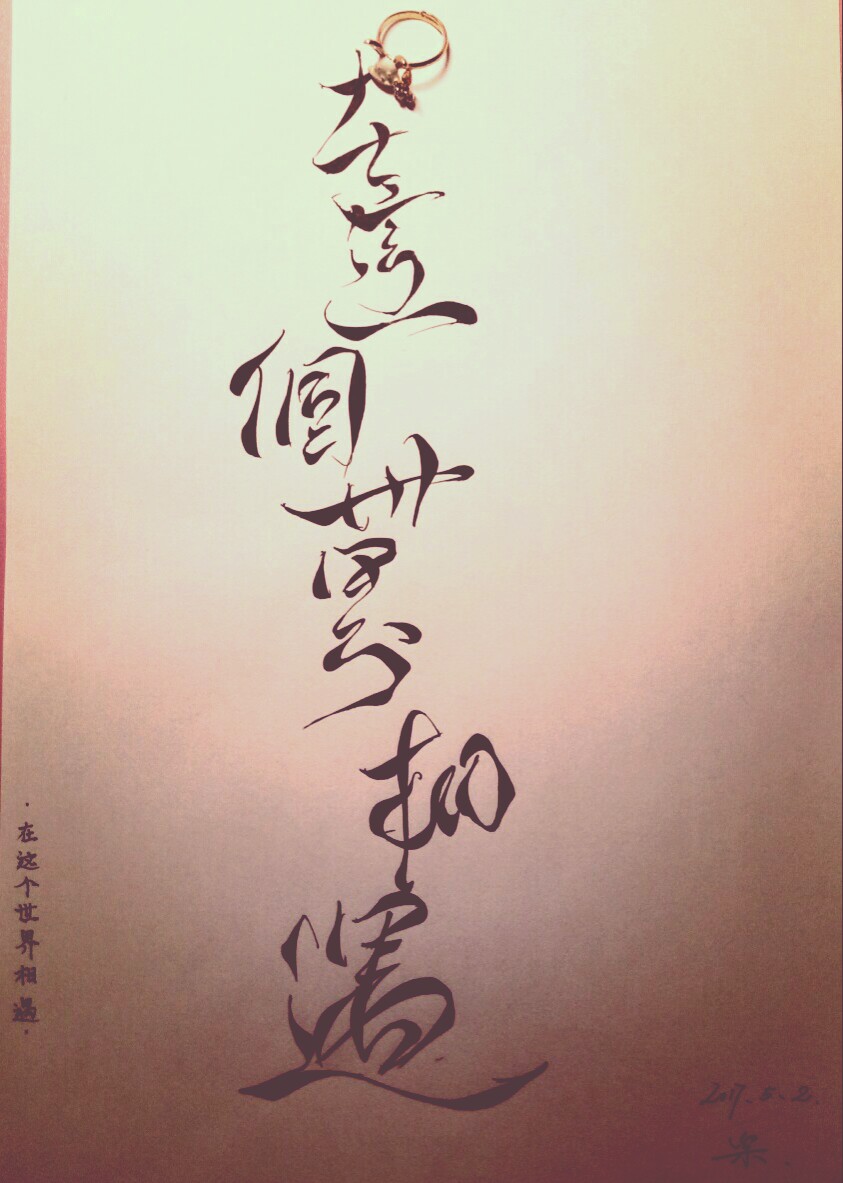 在這個世界相遇
·在这个世界相遇·
2017.5.2.